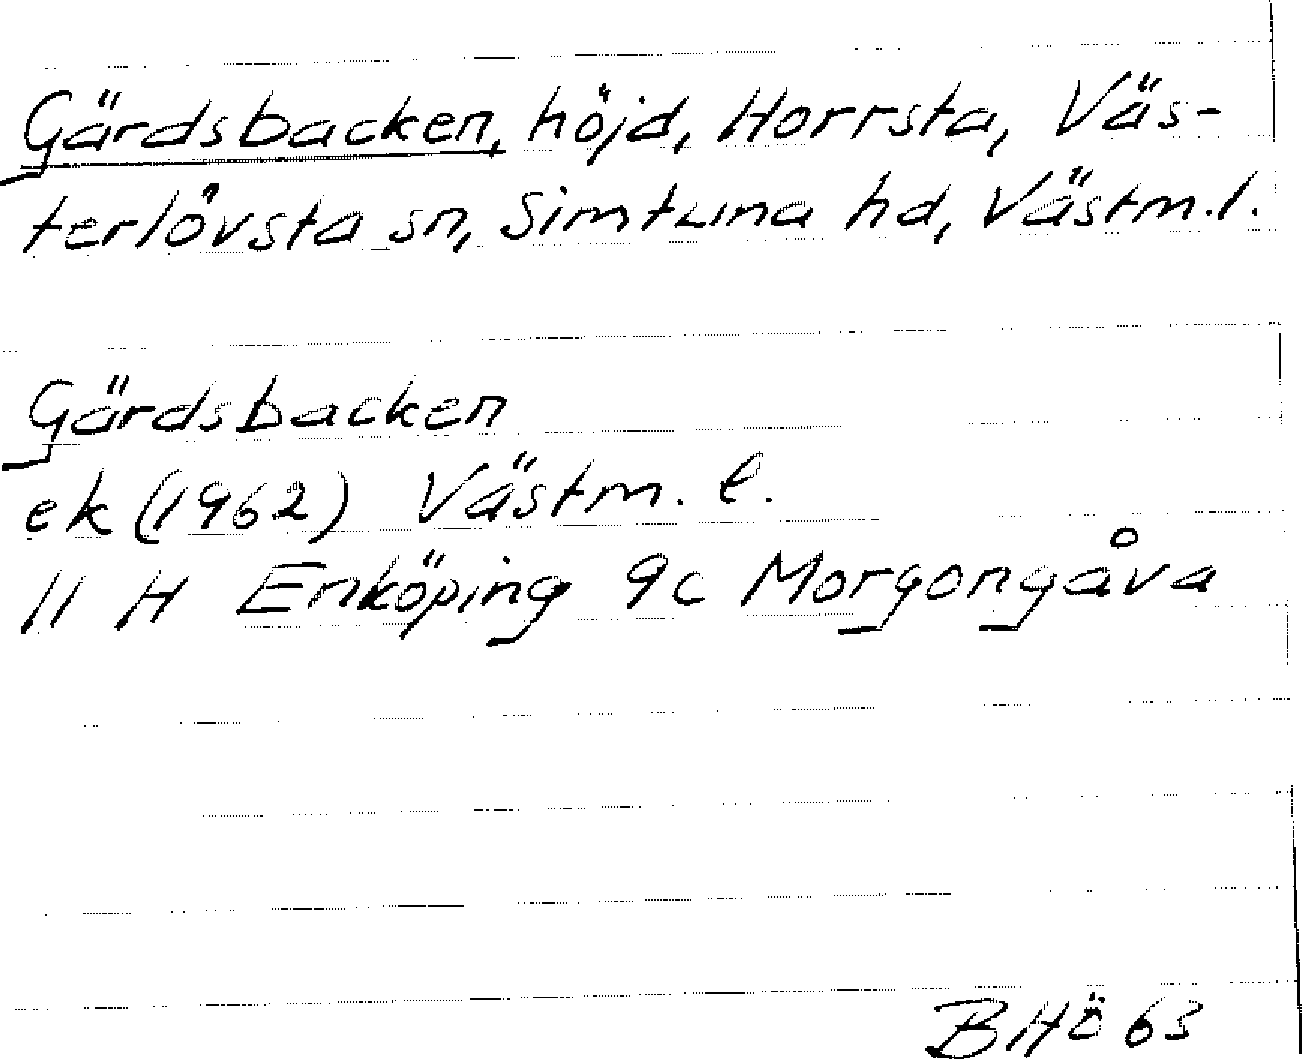 Gärdsbacken, höjd, Horrsta, Väs-
terlövsta sn, Simtuna hd, Västm.l.
Gärdsbacken
ek (1962) Västm. l.
11 H Enköping 9c Morgongåva
BHÖ 63